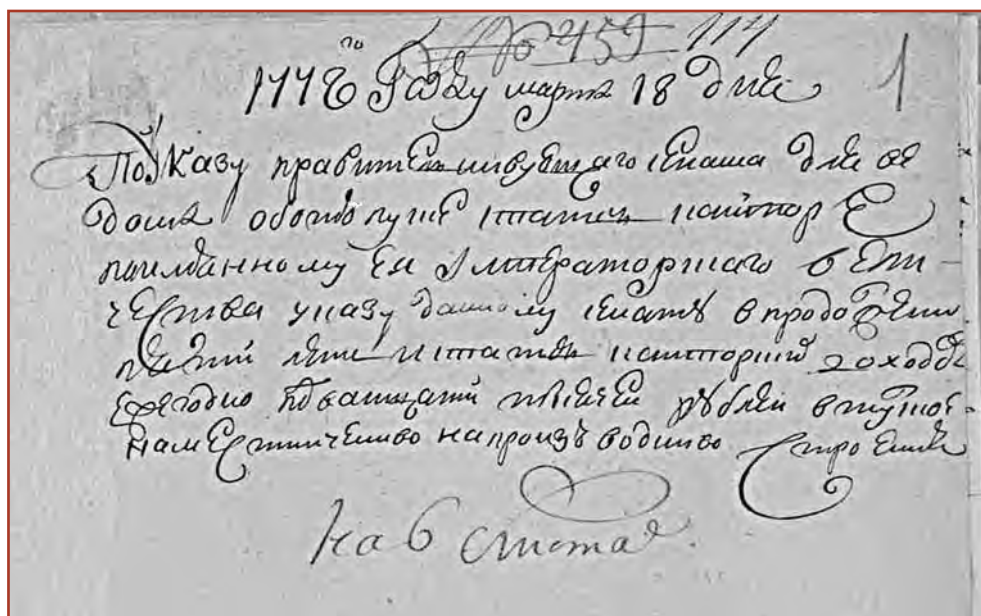 № 459 114
1
по
1778 Году марта 18 дня
По Указу правительствующаго сената для ве
дома оботпуске статсъ канторЕ
поимянному Ея Императорскаго вели-
чества указу данному сенату в продолжени
пяти летъ истатсъ канторских доходовъ
ежегодно подватцати тысячъ рублей втулское
намЕстничество напроизъводство строения
На 6 листах.